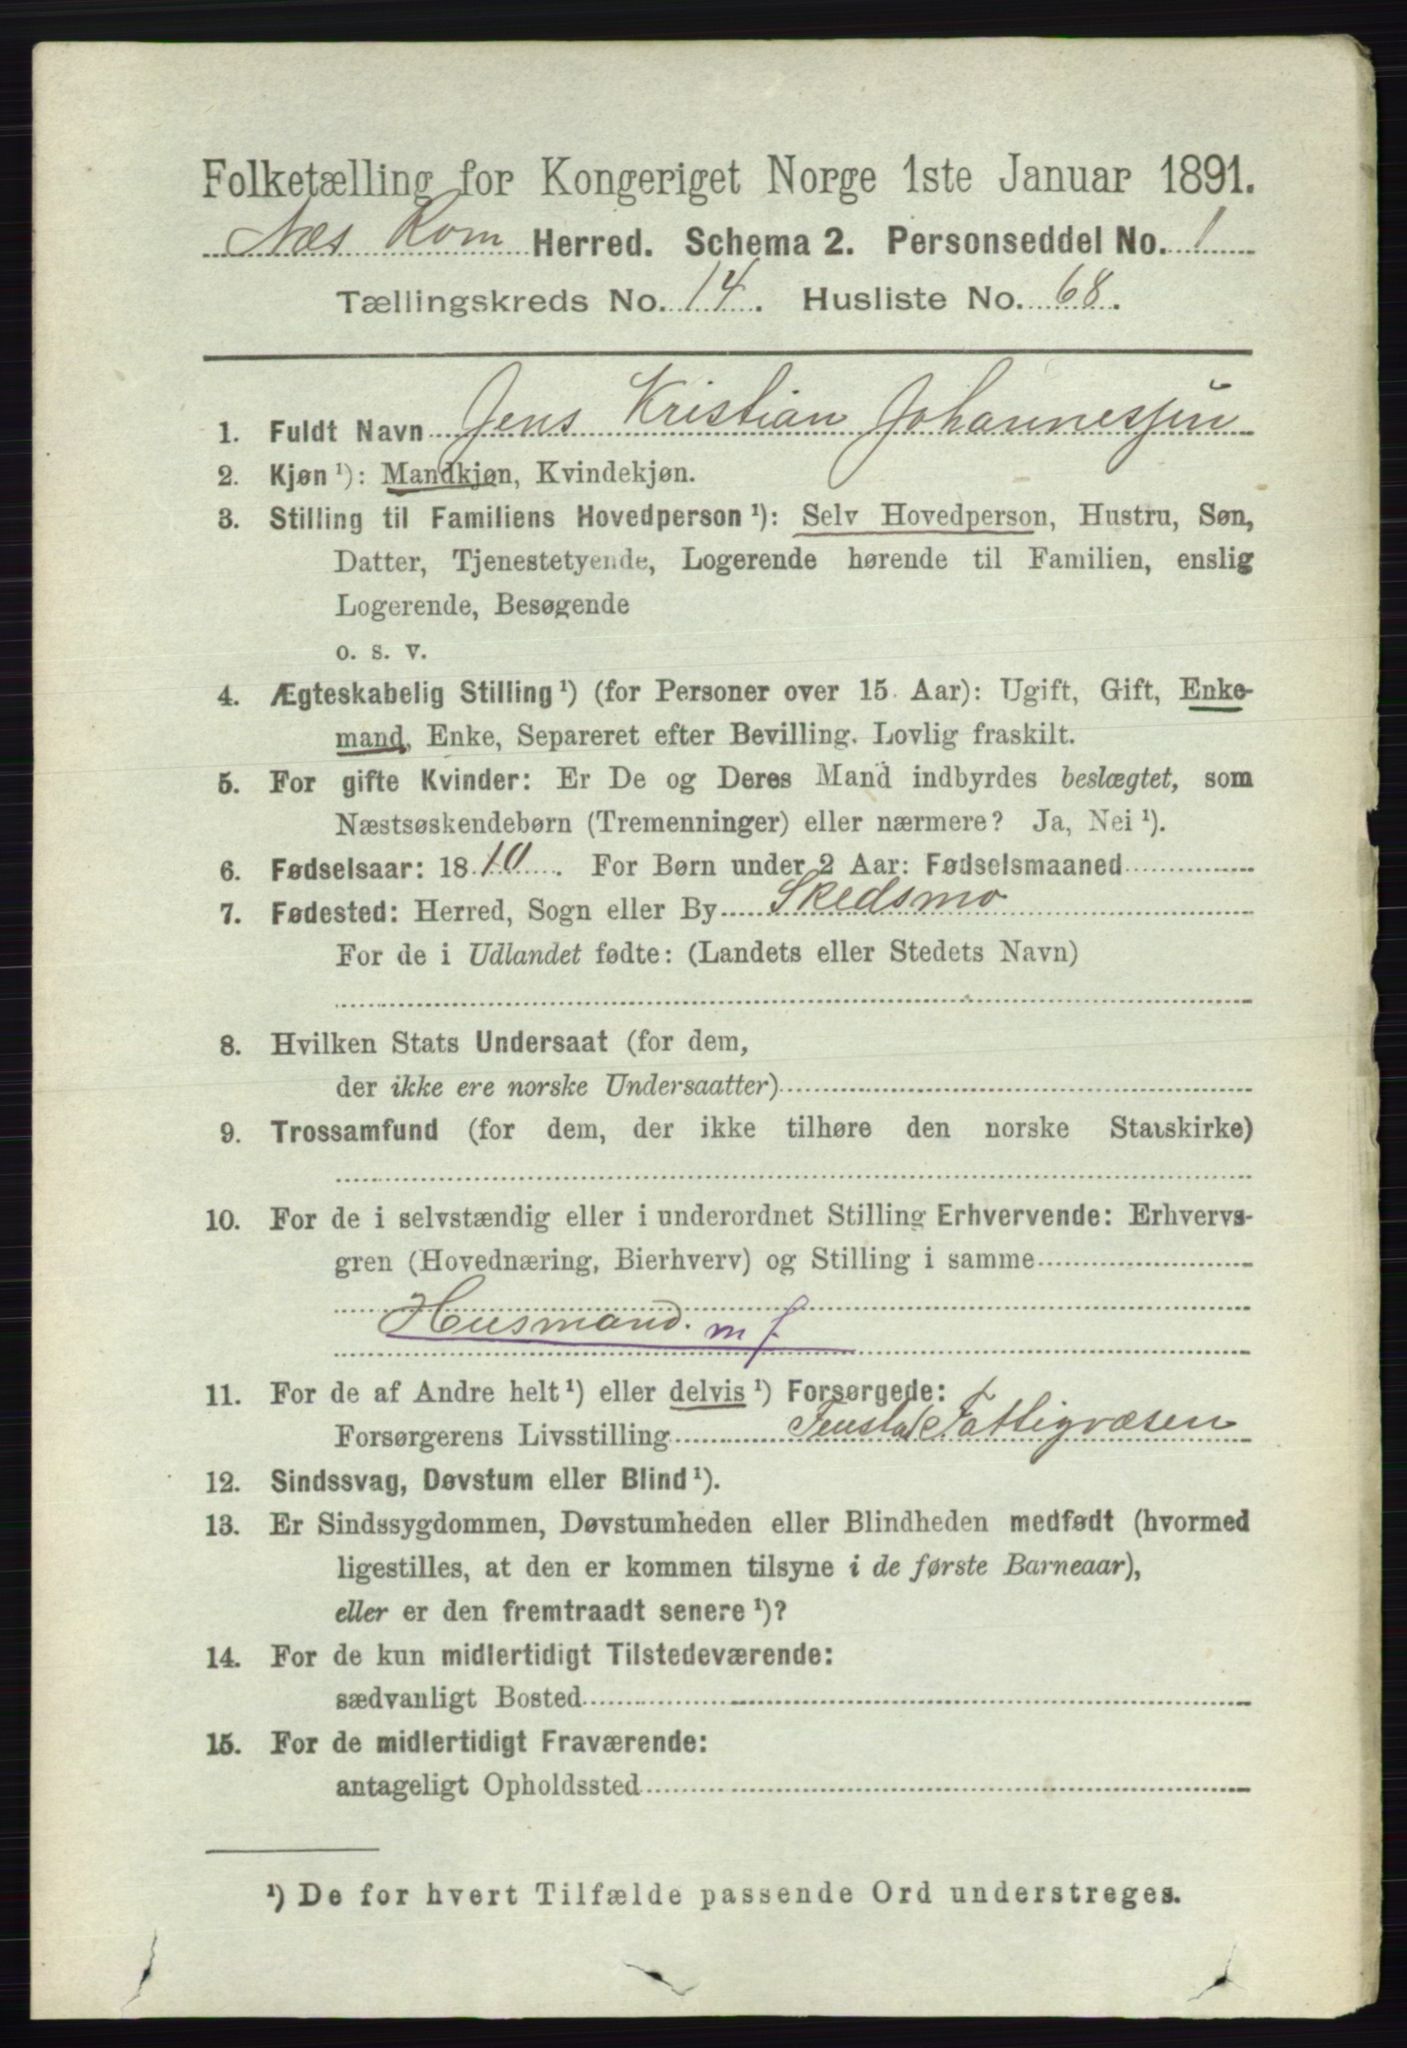 Folketælling for Kongeriget Norge 1ste Januar 1891.
Næs Rom Herred. Schema 2. Personseddel No. 1
Tællingskreds No. 14. Husliste No. 68.
1. Fuldt Navn Jens Kristian Johannessen
2. Kjøn ¹): Mandkjøn, Kvindekjøn.
3. Stilling til Familiens Hovedperson ¹): Selv Hovedperson, Hustru, Søn,
Datter, Tjenestetyende, Logerende hørende til Familien, enslig
Logerende, Besøgende
o. s. v.
4. Ægteskabelig Stilling ¹) (for Personer over 15 Aar): Ugift, Gift, Enke-
mand, Enke, Separeret efter Bevilling. Lovlig fraskilt.
5. For gifte Kvinder: Er De og Deres Mand indbyrdes beslægtet, som
Næstsøskendebørn (Tremenninger) eller nærmere? Ja, Nei ¹).
6. Fødselsaar: 1810. For Børn under 2 Aar: Fødselsmaaned
7. Fødested: Herred, Sogn eller By Skedsmo
For de i Udlandet fødte: (Landets eller Stedets Navn)
8. Hvilken Stats Undersaat (for dem,
der ikke ere norske Undersaatter)
9. Trossamfund (for dem, der ikke tilhøre den norske Statskirke)
10. For de i selvstændig eller i underordnet Stilling Erhvervende: Erhvervs-
gren (Hovednæring, Bierhverv) og Stilling i samme
Husmand. m f
11. For de af Andre helt ¹) eller delvis ¹) Forsørgede:
Forsørgerens Livsstilling Fenstad Fattigvæsen
12. Sindssvag, Døvstum eller Blind ¹).
13. Er Sindssygdommen, Døvstumheden eller Blindheden medfødt (hvormed
ligestilles, at den er kommen tilsyne i de første Barneaar),
eller er den fremtraadt senere ¹)?
14. For de kun midlertidigt Tilstedeværende:
sædvanligt Bosted
15. For de midlertidigt Fraværende:
antageligt Opholdssted
¹) De for hvert Tilfælde passende Ord understreges.